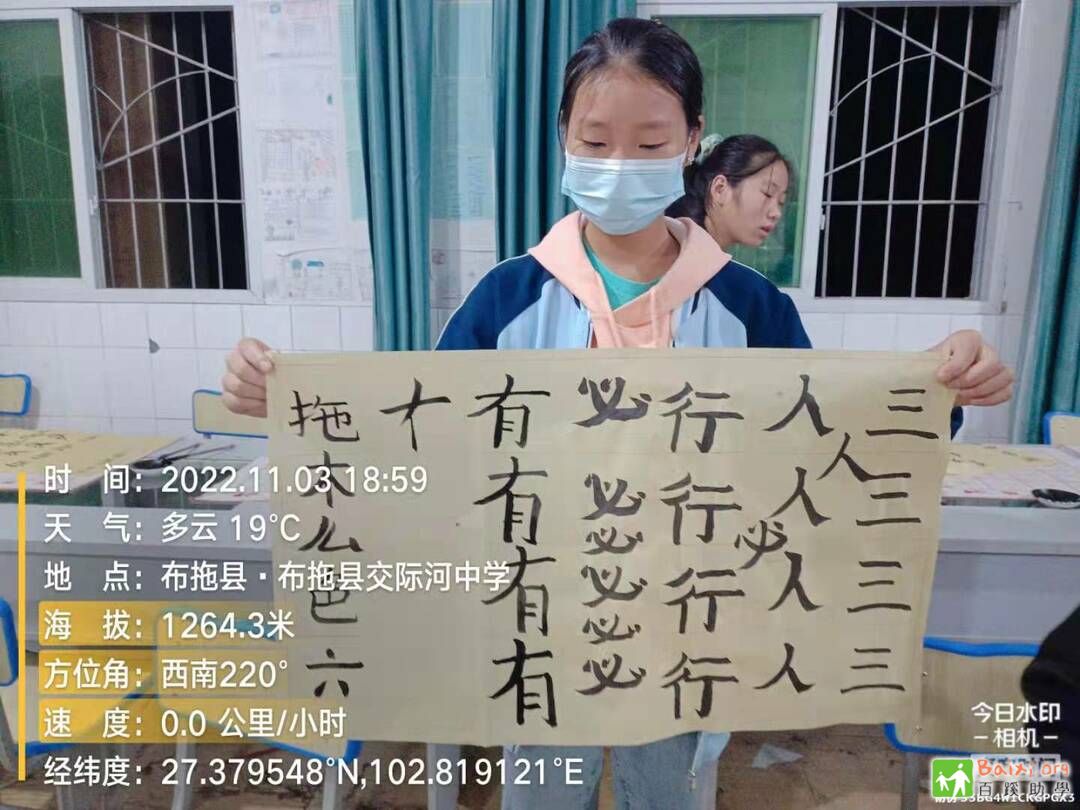 三三三三
人
人人人人
必
行行行行
必必必必必必
有有有有
拖木么色六
时 间：2022.11.03 18:59
天 气：多云 19℃
地 点：布拖县·布拖县交际河中学
海 拔：1264.3米
方位角：西南220°
速 度：0.0 公里/小时
经纬度：27.379548°N,102.819121°E
今日水印
-相机-
Baixi.org
百蹊助學